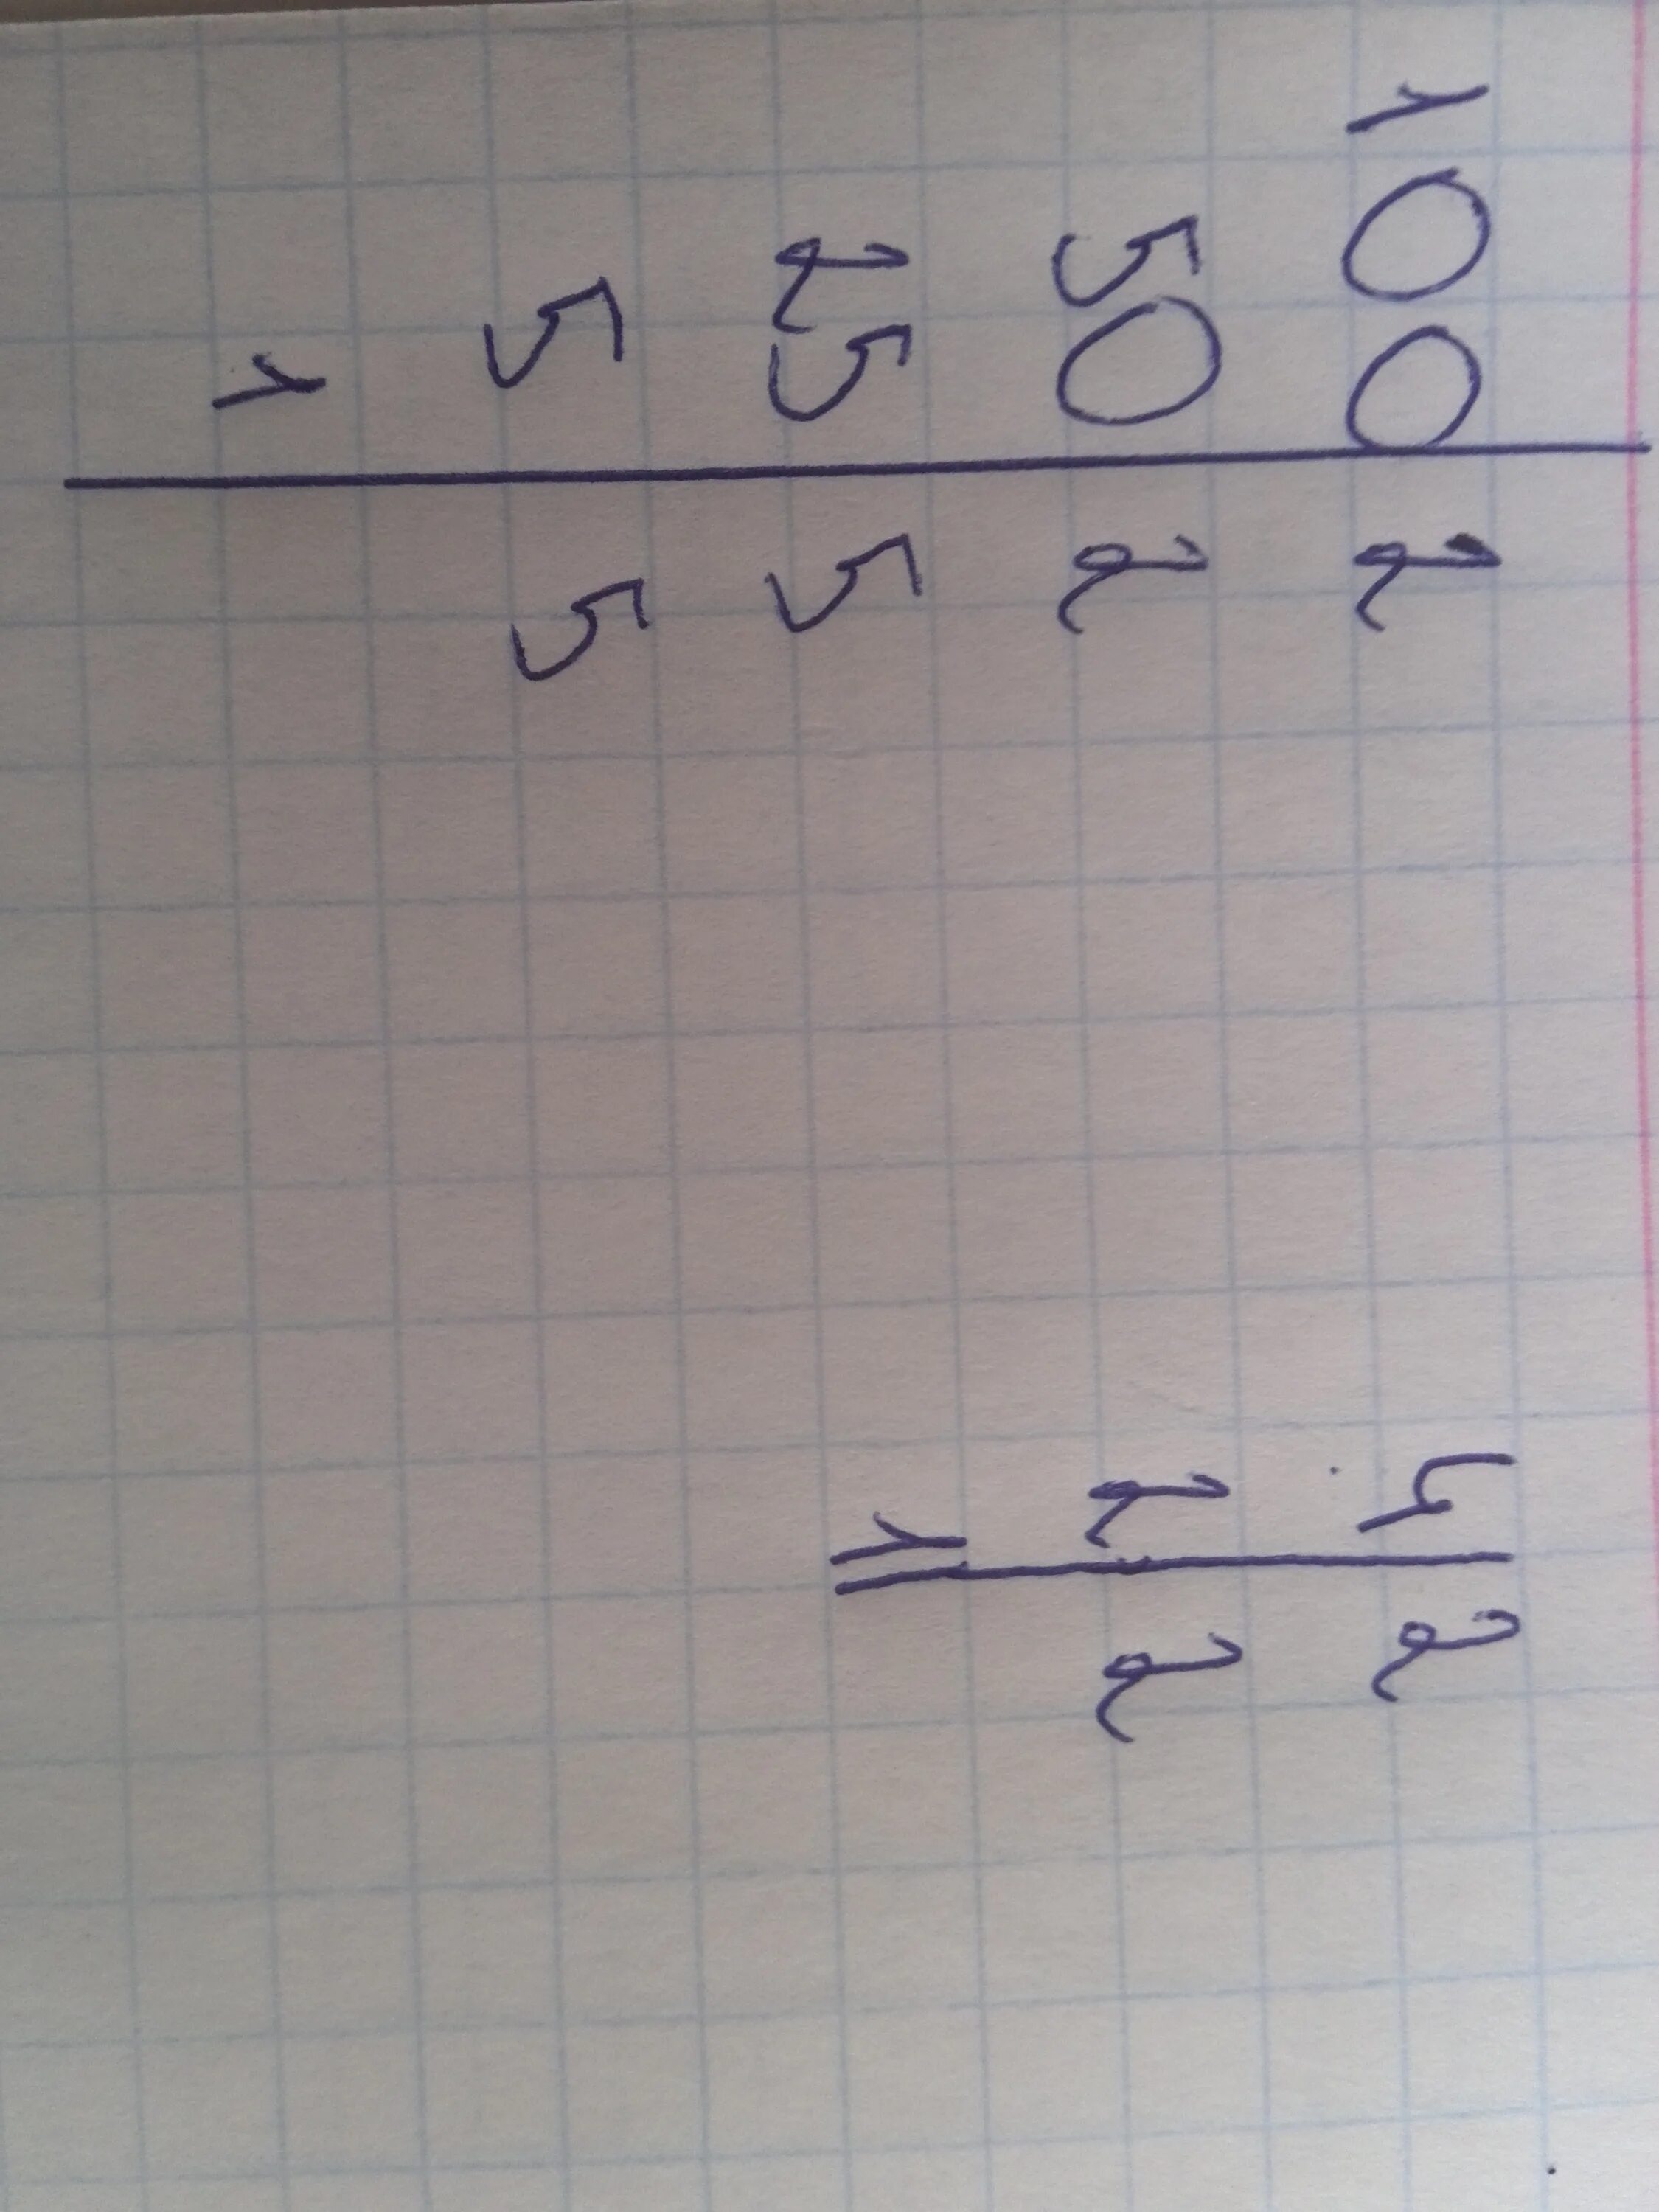 100 | 2
50 | 2
25 | 5
5 | 5
1 |
4 | 2
2 | 2
1 |